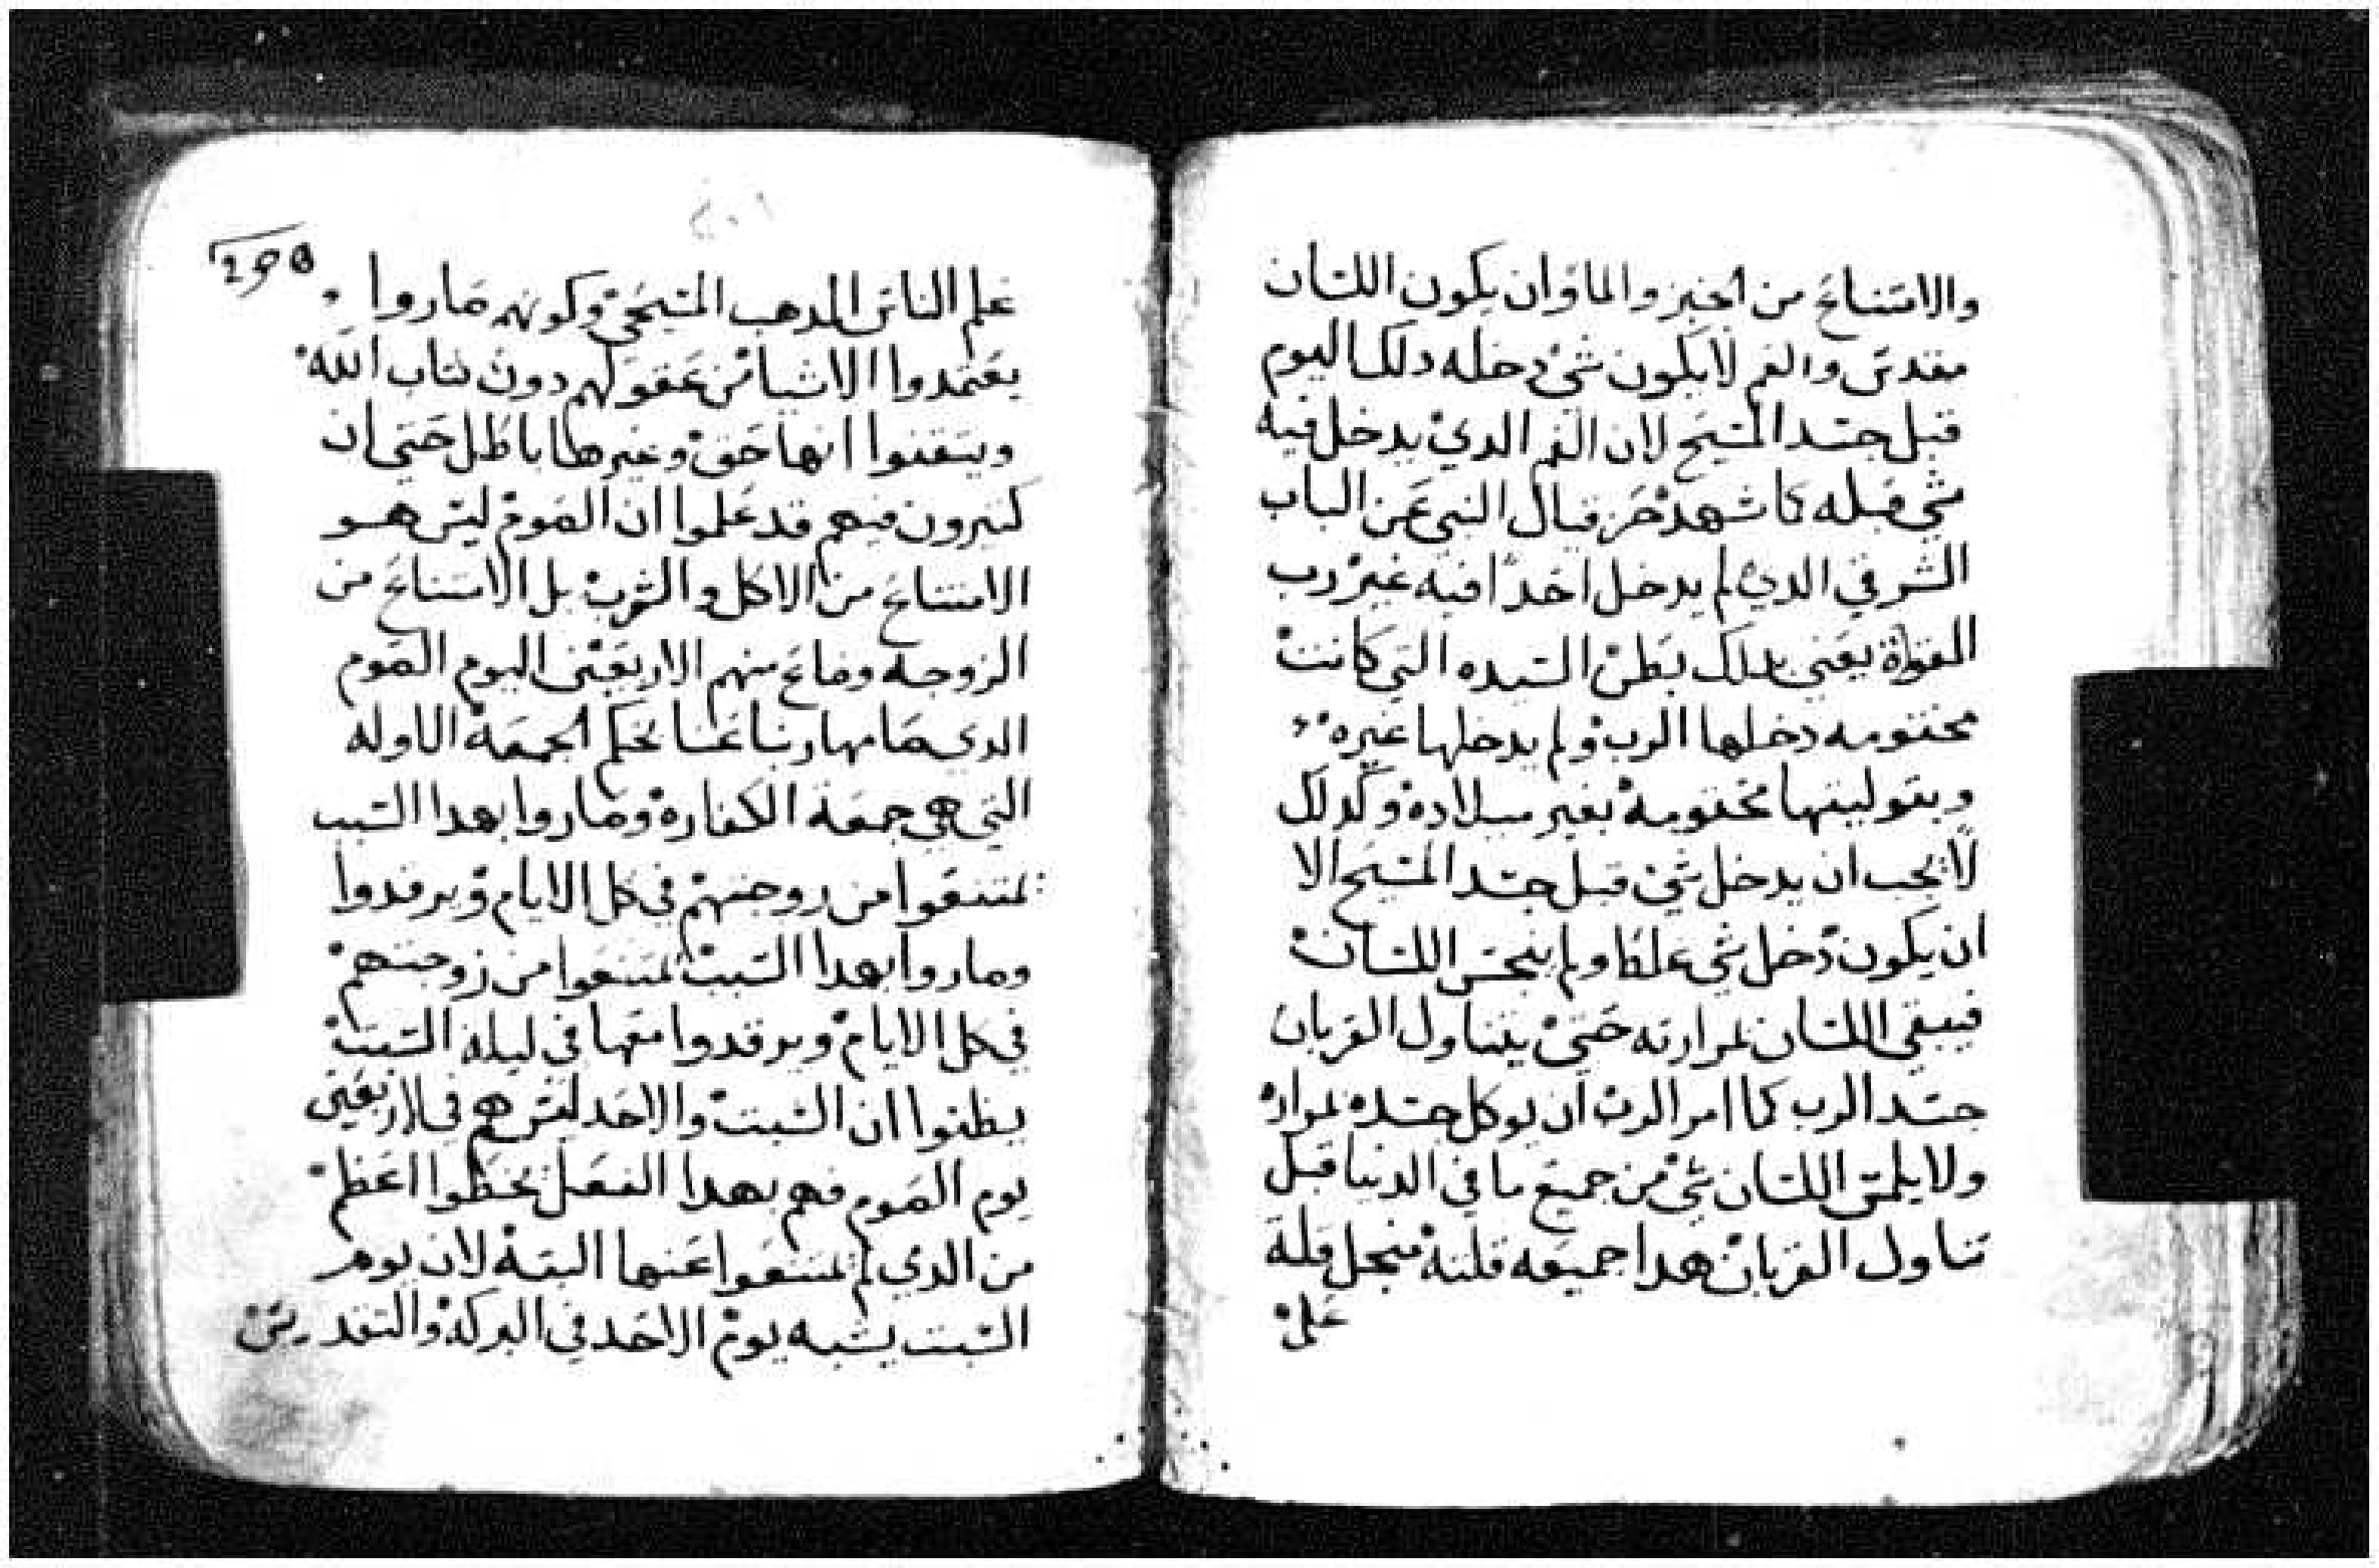 والامتناع من الخبز والماوان يكون اللسان
مقدس والفم لا يكون شي دخله دلك اليوم
قبل جسد المسيح لان الفم الدي يدخل فيه
شي قبله كما شهد حزقيال النبي عن الباب
الشرقي الدي لم يدخل احدا فيه غير رب
القواة يعني بدلك بطن السيده التي كانت
مختومه دخلها الرب ولم يدخلها غيره
وبتوليتها مختومة بغير ميلاده وكدلك
لا يجب ان يدخل شي قبل جسد المسيح الا
ان يكون دخل شي غلطا ولم ينجس اللسان
فيبقي اللسان لمرارته حتي يتناول القربان
جسد الرب كما امر الرب ان يوكل جسده لمراره
ولا يلمس اللسان شي من جميع ما في الدنيا قبل
تناول القربان هدا جميعه قلته منجل قلة
علم
علم الناس المدهب المسيحي وكونهم صاروا
يعتمدوا الاشيا من عقولهم دون كتاب الله
ويتيقنوا انها حق وغيرها باطل حتي ان
كتيرون منهم قد علموا ان الصوم ليس هو
الامتناع من الاكل والشرب بل الامتناع من
الزوجه وضاع منهم الاربعين اليوم الصوم
الدي صامها ربنا عنا بحكم الجمعة الاوله
التي هي جمعة الكفارة وصاروا بهدا السبب
يمتنعوا من زوجتهم في كل الايام ويرقدوا
وصاروا بهدا السبب يمتنعوا من زوجتهم
في كل الايام ويرقدوا معها في ليلة السبت
يظنوا ان السبت والاحد ليس هم في الاربعين
يوم الصوم فهم بهدا الفعل يخطوا اعظم
من الدي لم يمتنعوا عنها البتة لان يوم
السبت يشبه يوم الاحد في البركة والتقديس